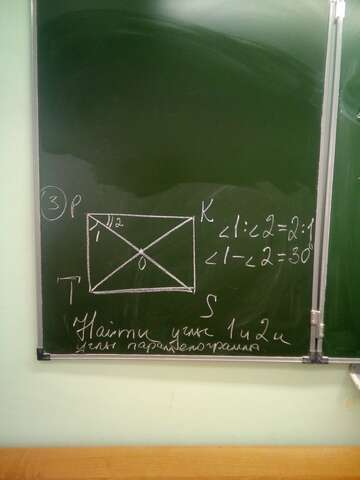 3
P
K
1
2
O
T
S
∠1:∠2=2:1
∠1-∠2=30°
Найти углы 1 и 2 и
углы параллелограмма